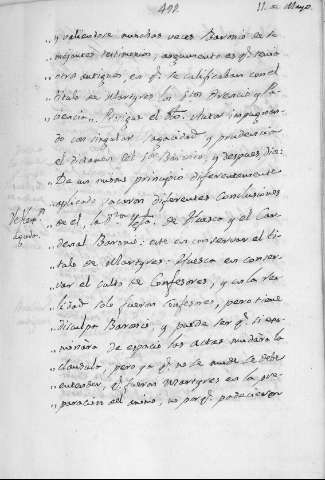 492
11 de Mayo.
„ y valiendose muchas veces Baronio de se
„ mejantes testimonios, argumento es q.e havia
„ otro antiguo, en q.e se calificaban con el
„ titulo de Martyres los S.tos Orencio y Pa
„ ciencia". Prosigue el P.e Matar impugnan
„ do con singular sagacidad y prudencia
„ el dictamen del S.or Baronio, y despues dice
„ De un mismo principio diferentemente
„ aplicado sacaron diferentes conclusiones
„ de el, la S.ta Yglesia de Huesca y el Car
„ denal Baronio: este en conservar el ti
„ tulo de Martyres: Huesca en conser
„ var el culto de Confesores, y en la rea
„ lidad solo fueron Confesores, pero tiene
„ disculpa Baronio, y puede ser q.e si exa
„ minára de espacio las actas mudára la
„ clausula; pero ya q.e no se mude se debe
„ entender, q.e fueron Martyres en la pre
„ paracion del animo, no porq.e padecieron